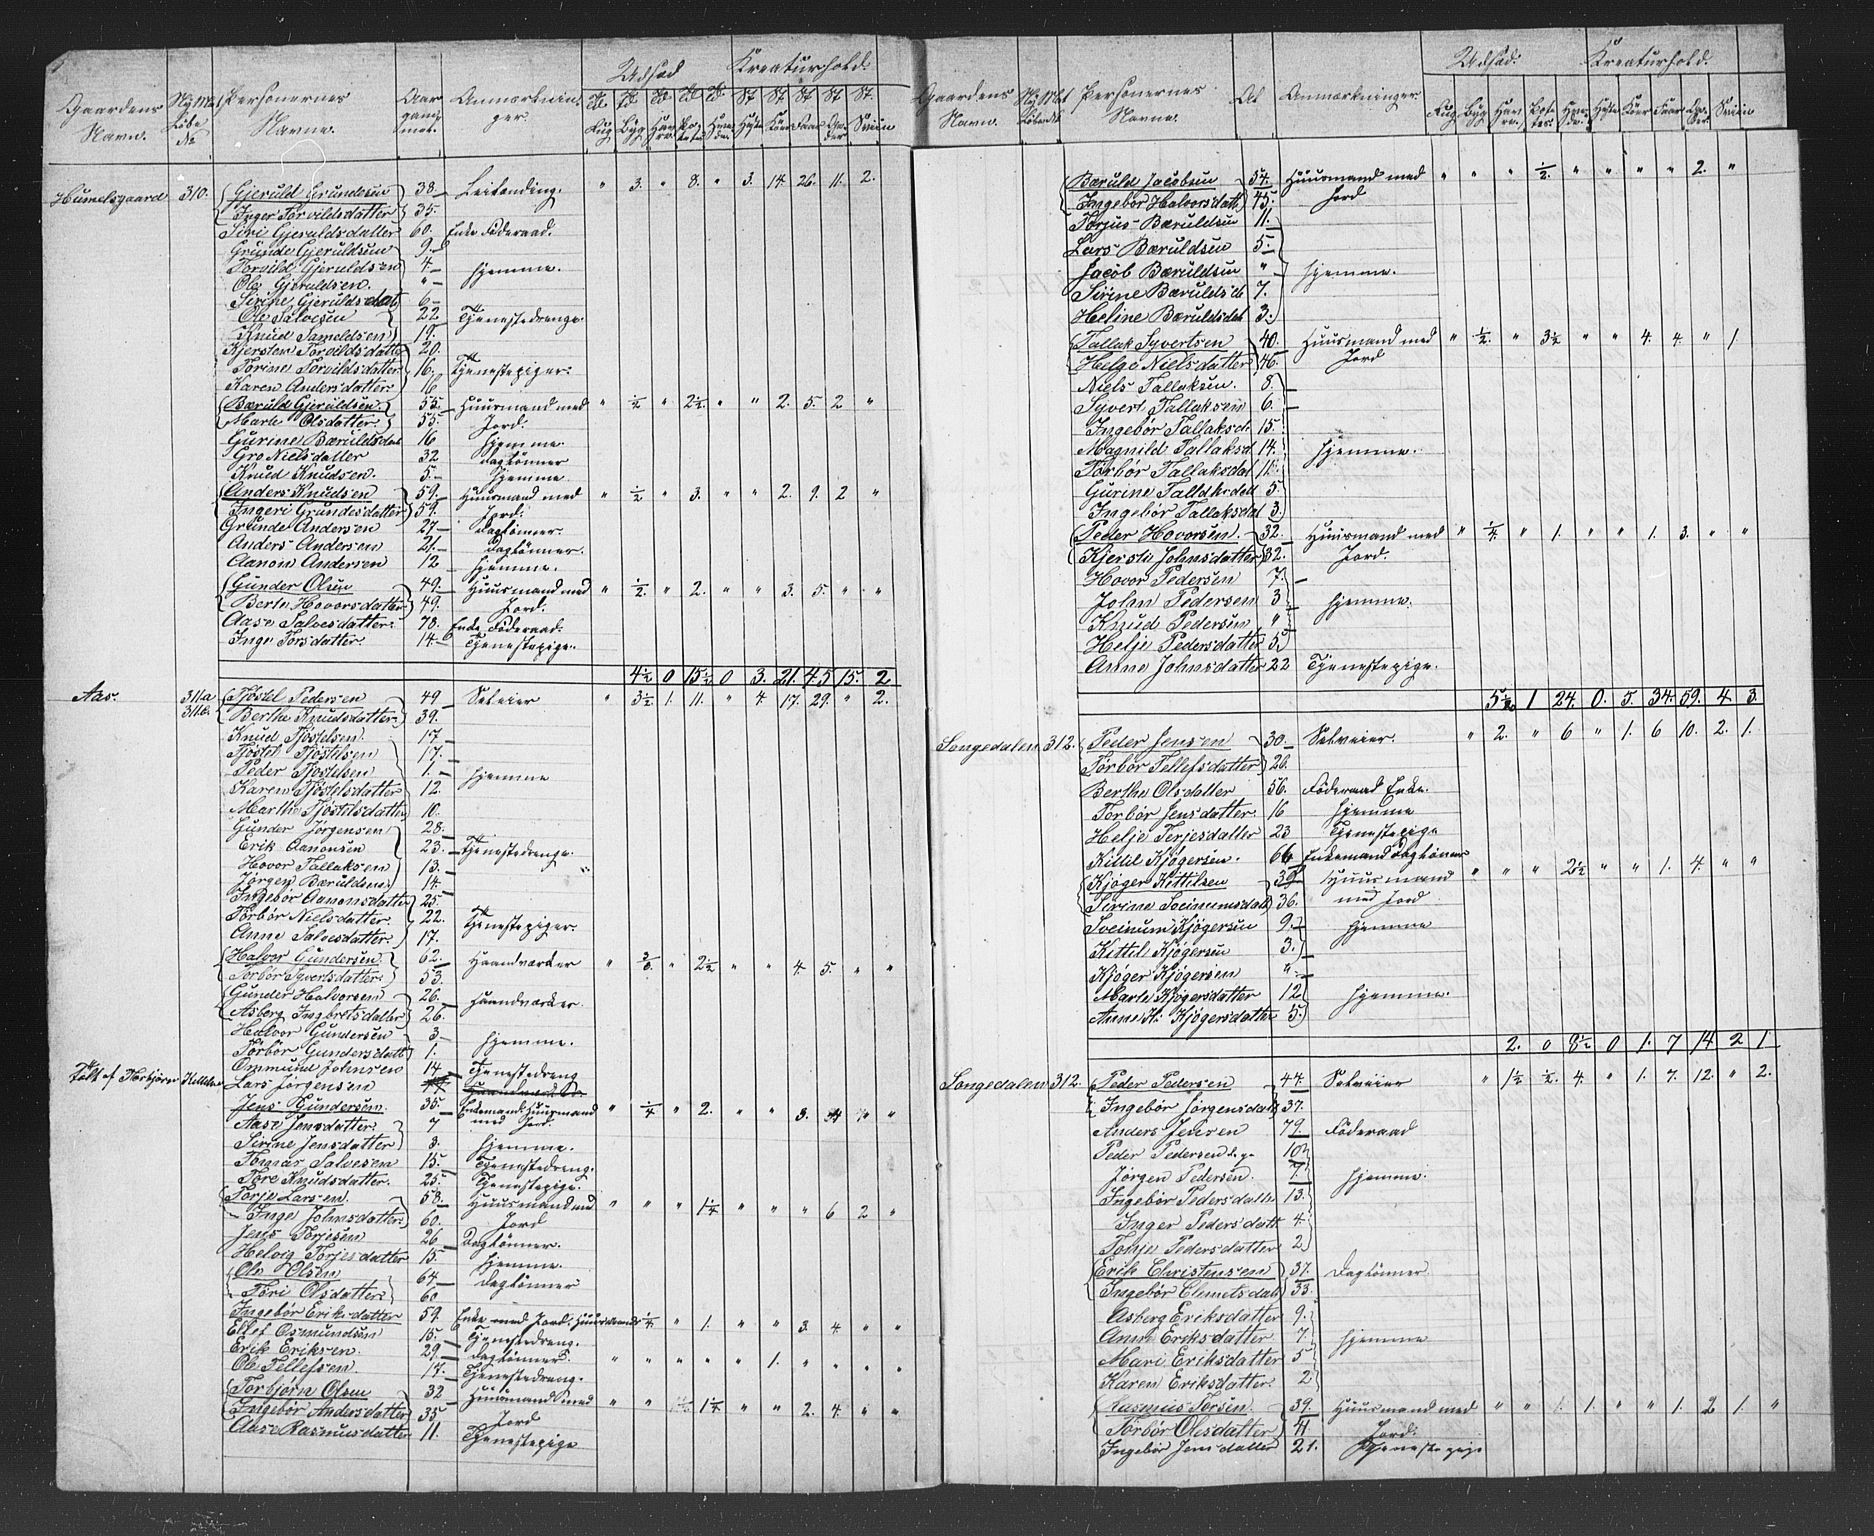 Gaardens Navn. Ny Mat Löbe № Personernes Navne. Aargang mot. Anmærkninger. Udsæd Kreaturhold.
Rug Byg Havre Potetes Hvede Heste Köer Faar Geder Sviin
Humelsgaard 310. Gjeruld Grundesen 38. Leilending. " 3. " 8. " 3. 14. 26. 11. 2.
Inger Torvildsdatter 35.
Siri Gjeruldsdatter 60. Enke Föderaad.
Grunde Gjeruldsen 9.
Torvild Gjeruldsen 4 hjemme.
Ole Gjeruldsen. "
Sirine Gjeruldsdat 6
Ole Salvesen 22 Tjenestedrenge.
Knud Sameldsen 19.
Kjersten Torvildsdatter 20.
Torine Torvildsdatter 16. Tjenestepiger.
Karen Andersdatter 16
Bæruld Gjeruldsen. 55. Huusmand med " ½ " 2½ " " 2. 5. 2 "
Marte Olsdatter. 55. Jord.
Gurine Bæruldsdat 16 hjemme.
Gro Nielsdatter 32 Daglönner
Knud Knudsen. 5. hjemme
Anders Knudsen 59. Huusmand med " ½ " 3. " " 2. 9. 2 "
Ingeri Grundesdatter 59. Jord.
Grunde Andersen 27 Daglönner.
Anders Andersen 21. Daglönner.
Aanon Andersen 12 hjemme.
Gunder Olsen 49. Huusmand med " ½. " 2. " " 3. 5. " "
Berte Hovorsdatter 49. Jord.
Aase Salvesdatter. 78. Enke Föderaad.
Inge Torsdatter. 14. Tjenestepige.
4½ 0 15½ 0 3. 21. 45 15. 2
Aas. 311a 311b. Tjöstel Pedersen 49 Selveier " 3½. 1. 11. " 4. 17. 29. " 2.
Berthe Knudsdatter. 39.
Knud Tjöstelsen. 17
Tjöstel Tjöstelsen 17.
Peder Tjostelsen 1. hjemme
Karen Tjöstelsdatter 12.
Marthe Tjöstelsdatter 10.
Gunder Jörgensen 28.
Erik Aanonsen 23. Tjenestedrenge.
Hovor Tallaksen 13.
Jörgen Bæruldsen. 14.
Ingebör Aanonsdatter 25.
Torbör Nielsdatter. 22. Tjenestepiger.
Anne Salvesdatter. 17.
Halvor Gundersen. 62. Haandværker " " 2½ " " 4. 5. " "
Torbör Syvertsdatter. 53.
Gunder Halvorsen 26. Haandværker.
Asberg Ingbretsdatter 26.
Halvor Gundersen 3 hjemme.
Torbör Gundersdatt 1.
Ommund Johnsen 14 Tjenestedreng
Lars Jörgensen
Jens Gundersen. 35. Enkemand. Huusmand med Jord. " ¼ " 2. " " 3. 4 " "
Aase Jensdatter. 7
Sirine Jensdatter 3. hjemme.
Tomas Salvesen 15. Tjenestedreng.
Tore Knudsdatter. 25. Tjenestepige.
Torje Larsen. 58. Huusmand med " " " 1¼ " " " 6 2 "
Inge Johnsdatter. 60. Jord
Jens Torjesen 26 Daglönner.
Helvig Torjesdatter 15 hjemme.
Ole Olsen 64 Daglönner
Tori Olsdatter. 60
Ingebör Eriksdatter 59. Enke med Jord. Huusmands ¼. " 1. " " 3. 4. " "
Ellef Osmundsen 15. Tjenestedreng.
Erik Eriksen 29. Daglönner. " " " " " 1. " " " "
Ole Tellefsen 17. Tjenestedreng.
Torbjörn Olsen 32 Huusmand med " " 1¼ " " 2. 4. " "
Ingebör Andersdatter 35 Jord
Aase Rasmusdatter 11. Tjenestepige
Gaardens Navn. Ny Mat Löbe № Personernes Navne. Al Anmærkninger. Udsæd. Kreaturhold.
Rug Byg Havre. Potetes. Hvede. Heste Köer Faar Geder. Sviin
Bæruld Jacobsen 54. Huusmand med " " " ½ " " " " 2. "
Ingebör Halvorsdatt 45. Jord
Torjus Bæruldsen 11.
Lars Bæruldsen 5.
Jacob Bæruldsen " hjemme.
Sirine Bæruldsd 7.
Heline Bæruldsdat 3.
Tallak Syvertsen 40. Huusmand med " ½. " 3½ " " 4. 4. " 1.
Helge Nielsdatter 46. Jord
Niels Tallaksen. 8.
Syvert Tallaksen 6.
Ingebör Tallaksd. 15.
Magnild Tallaksd 14. hjemme.
Torbör Tallaksdat
Gurine Tallaksdatt 5.
Ingebör Tallaksdat 3.
Peder Hovorsen. 32. Huusmand med " ¼. " 1. " " 1. 3. " "
Kjersti Johnsdatter 32. Jord.
Hovor Pedersen 7.
Johan Pedersen 3 hjemme.
Knud Pedersen "
Helje Pedersdatter 5
Anne Johnsdatter 22 Tjenestepige.
1 24. 0. 5. 34. 59. 4 3.
Songedalen 312. Peder Jensen 30. Selveier. " 2. " 6 " 1. 6 10. 2. 1.
Torbör Tellefsdatter 26.
Berthe Olsdatter 56. Föderaad Enke.
Torbör Jensdatter. 16 hjemme
Helje Terjesdatter 23 Tjenestepige
Kittil Kjögersen. 64 Enkemand Daglönner
Kjöger Kittilsen 39 Huusmand " " " 2½ " " 1. 4. " "
Sirine Soeinumsdatt 36. med Jord
Soeinum Kjögersen 9. hjemme
Kittil Kjögersen 3.
Kjöger Kjögersen "
Marte Kjögersdatter 12 hjemme.
Anne K. Kjögersdatter 5.
2. 0 8½ 0 1. 7 14 2 1.
Songedalen 312. Peder Pedersen 44. Selveiier " 1½ ½. 4. " 1. 7. 12. " 2.
Ingebör Jörgensdatt 37.
Anders Jensen 79. Föderaad
Peder Pedersen 10
Jörgen Pedersen. 7. hjemme.
Ingebör Pedersdatter 13.
Inger Pedersdatt 4
Tonje Pedersdatter 2
Erik Christensen 37. Daglönner
Ingebör Clemetsdat 33.
Asberg Eriksdatter 9.
Anne Eriksdatter 7 hjemme
Mari Eriksdatter 5
Karen Eriksdatter. 2
Rasmus Torsen. 39. Huusmand med " " 1. 1. " " 1. 2 1. "
Torbör Olesdatter 41 Jord.
Ingebör Jensdatter 21. Tjenestepige